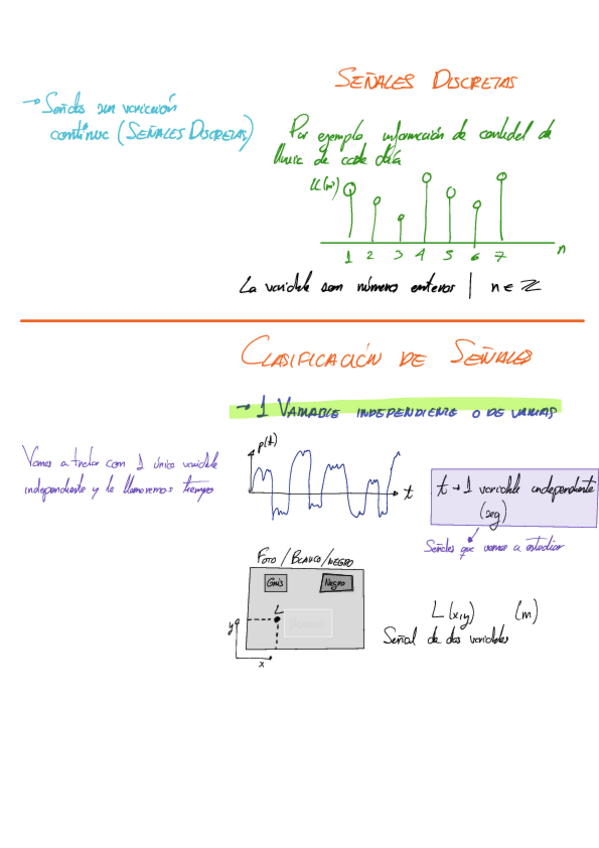 SEÑALES DISCRETAS
→ Señales sin variación
continua (SEÑALES DISCRETAS)
Por ejemplo información de cantidad de
lluvia de cada día
LL(m³)
1 2 3 4 5 6 7 n
La variable son números enteros | n ∈ ℤ
CLASIFICACIÓN DE SEÑALES
→ 1 VARIABLE INDEPENDIENTE O DE VARIAS
Vamos a tratar con 1 única variable
independiente y le llamaremos tiempo
p(t)
t
t → 1 variable independiente
(seg)
Señales que vamos a estudiar
FOTO / BLANCO / NEGRO
Gris
Negro
L
Blanco
y
x
L(x,y) (m)
Señal de dos variables